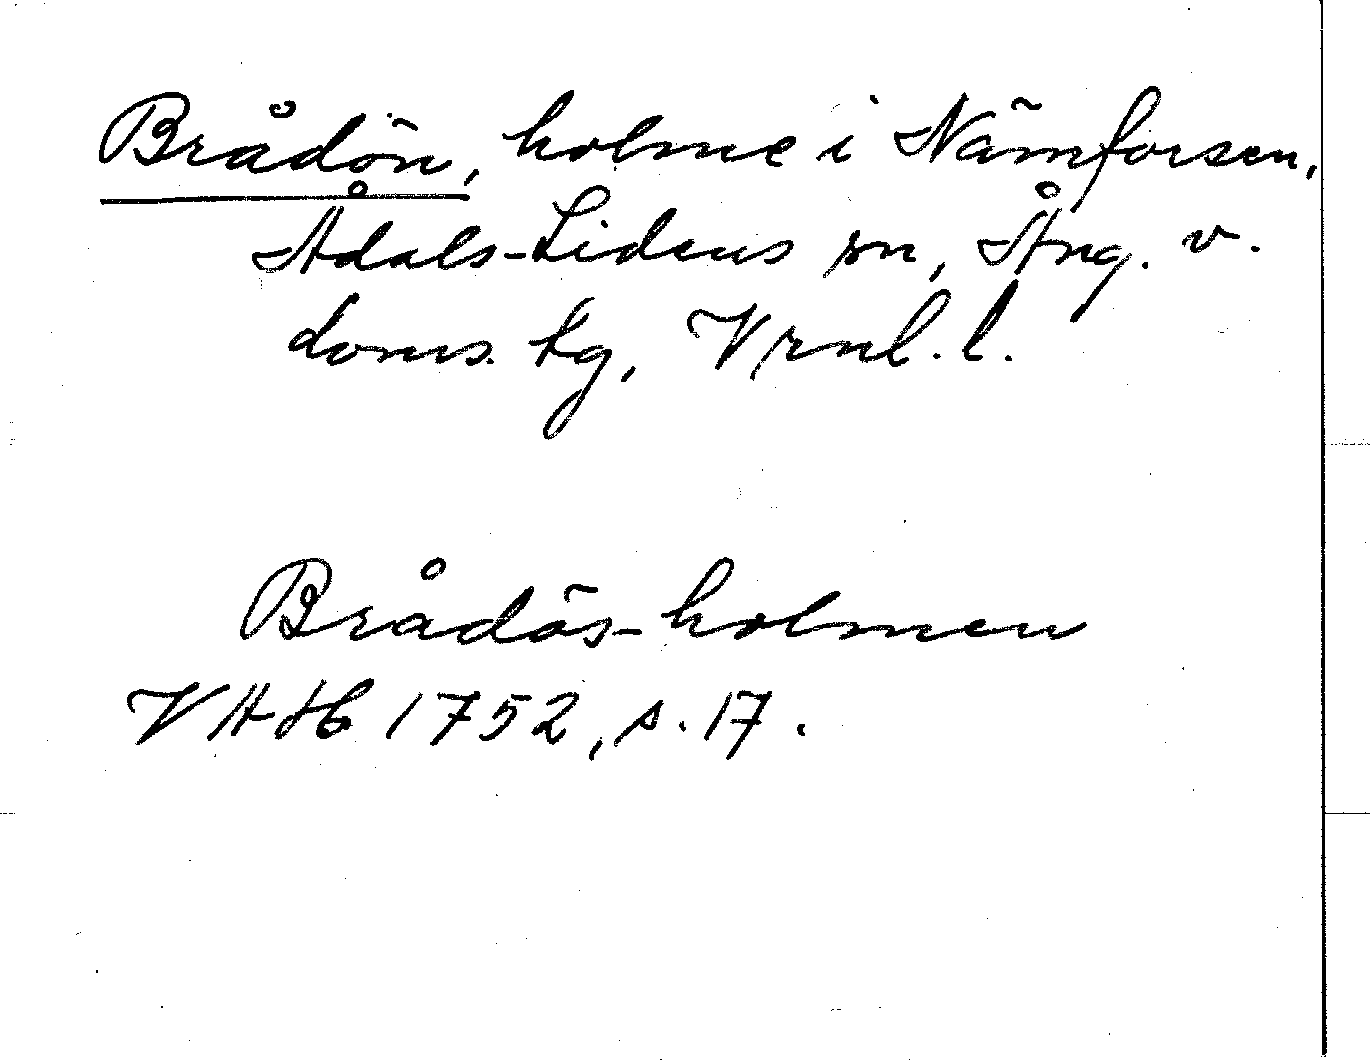 Brådön, holme i Nämforsen,
Ådals-Lidens sn, Ång. v.
doms. tg, Vrnl. l.
Brådös-holmen
VAH 1752, s. 17.